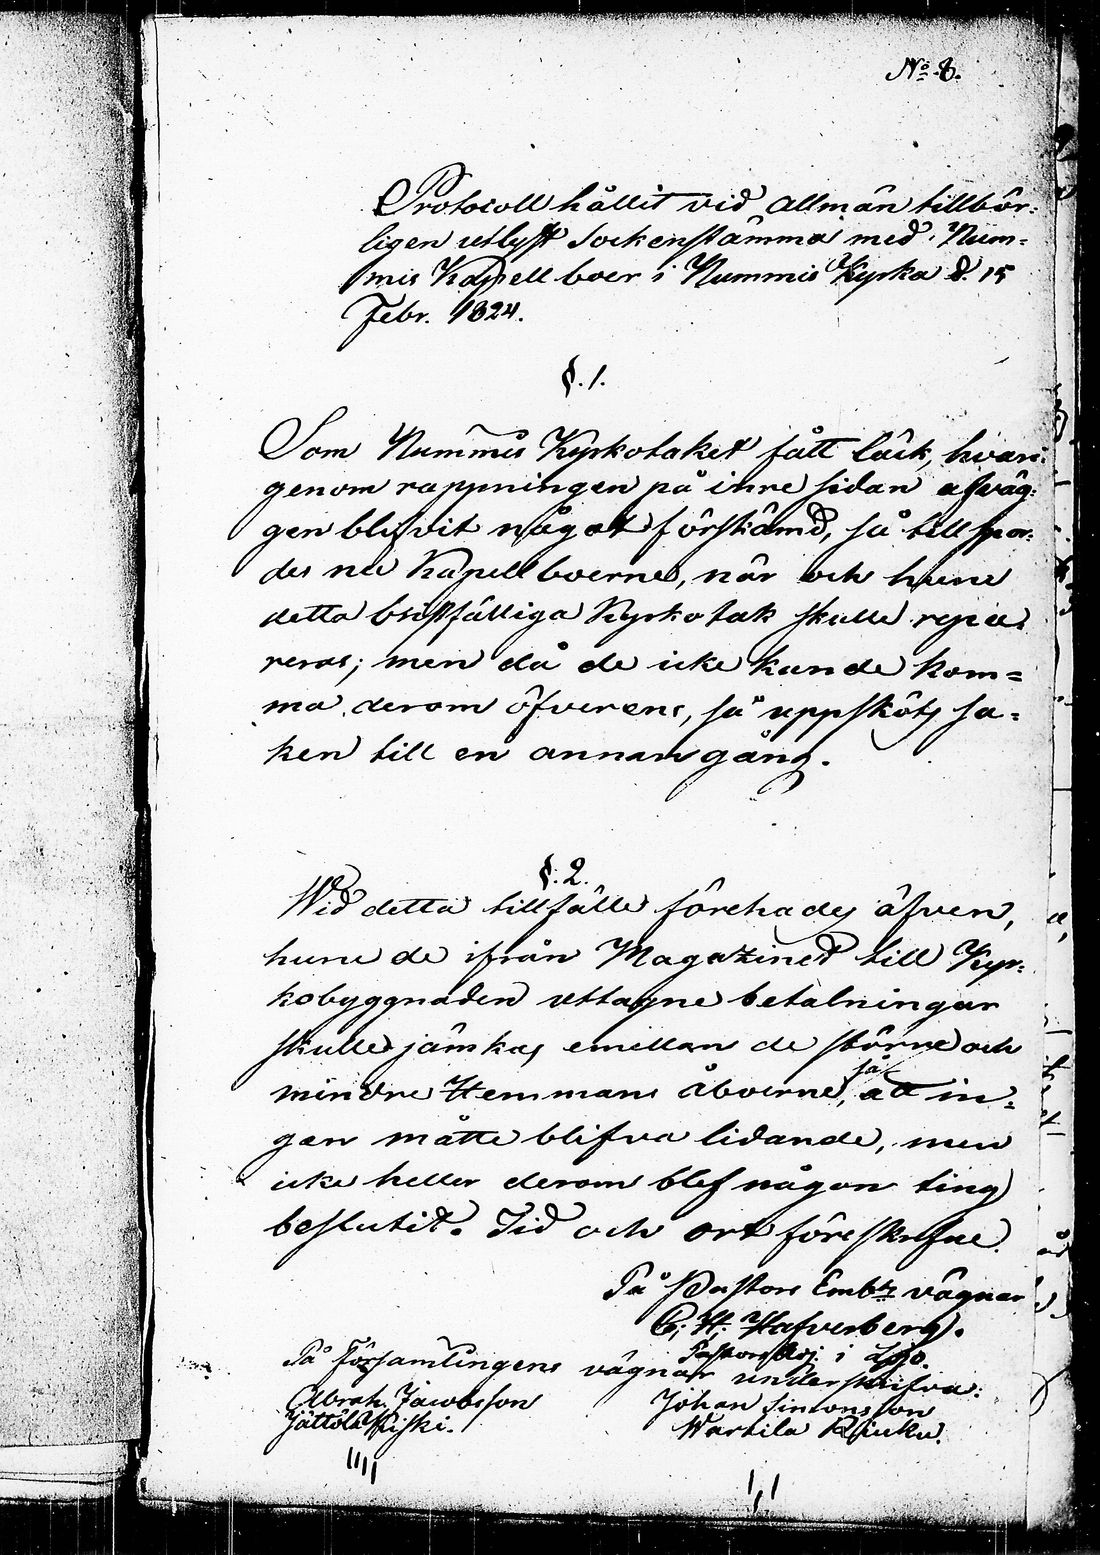 No. 8.
Protocoll hållit vid allmän tillbör-
ligen utlyst Sockenstämma med Num-
mis Kapellboer i Nummis Kyrka d. 15
Febr. 1824.
§. 1.
Som Nummis Kyrkotaket fått läck, hvari-
genom rappningen på inre sidan af väg-
gen blifvit något förskämd, så tillspor-
des nu Kapellboerne, när och huru
detta bristfälliga Kyrkotak skulle repa-
reras; men då de icke kunde kom-
ma derom öfverens, så uppsköts sa-
ken till en annan gång.
§. 2.
Wid detta tillfälle förehades äfven,
huru de ifrån Magazinet till Kyr-
kobyggnaden uttagne betalningar
skulle jämkas emellan de större och
mindre Hemmans åboerne, så att in-
gen måtte blifva lidande, men
icke heller derom blef någon ting
beslutit. Tid och ort föreskrifne.
På Pastors Embts vägnar
C. H. Hafverberg.
Pastors Adj. i Lojo.
På Församlingens vägnar underskrifva:
Abrah. Jacobsson
Jättölä Kiski.
Johan Simonsson
Wartila Riuku.